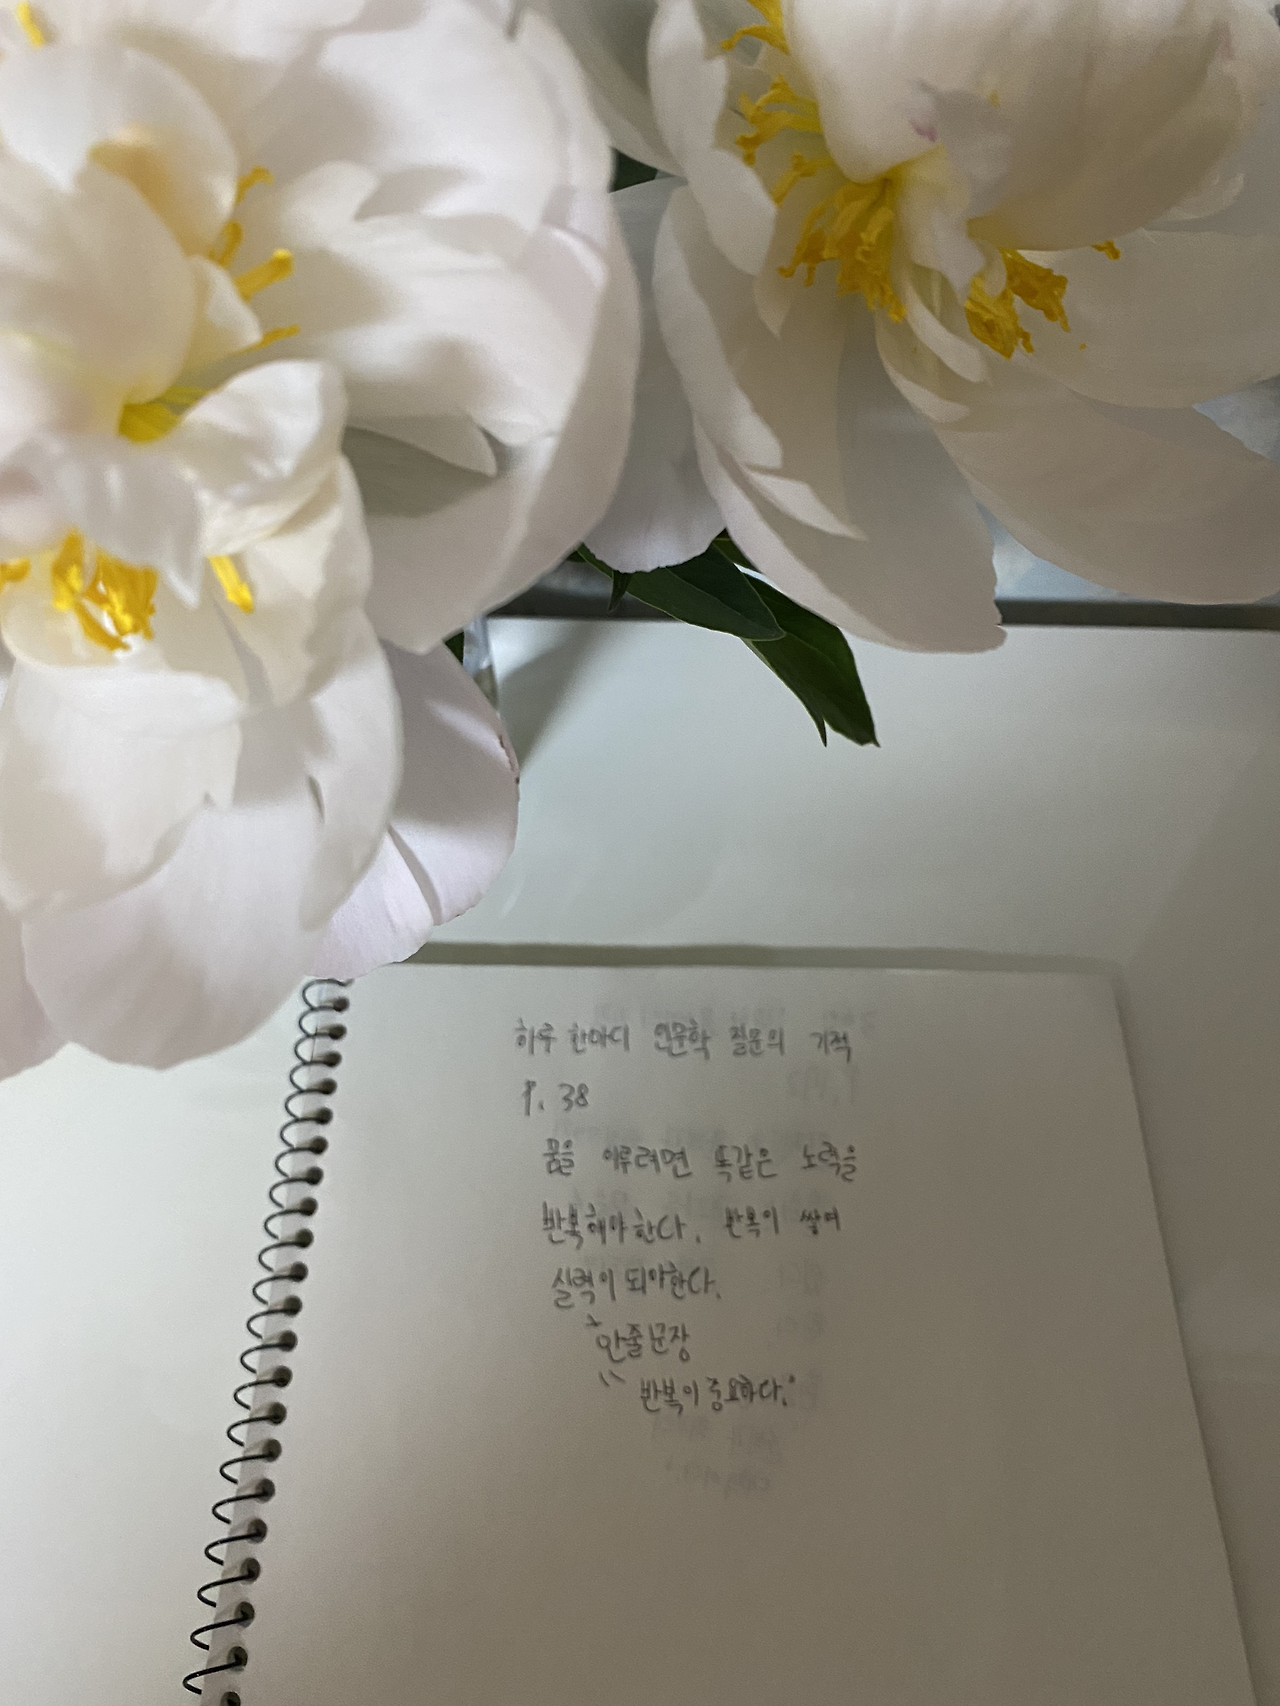 하루 한마디 인문학 질문의 기적
P. 38
꿈을 이루려면 똑같은 노력을
반복해야한다. 반복이 쌓여
실력이 되야한다.
한줄문장
" 반복이중요하다."